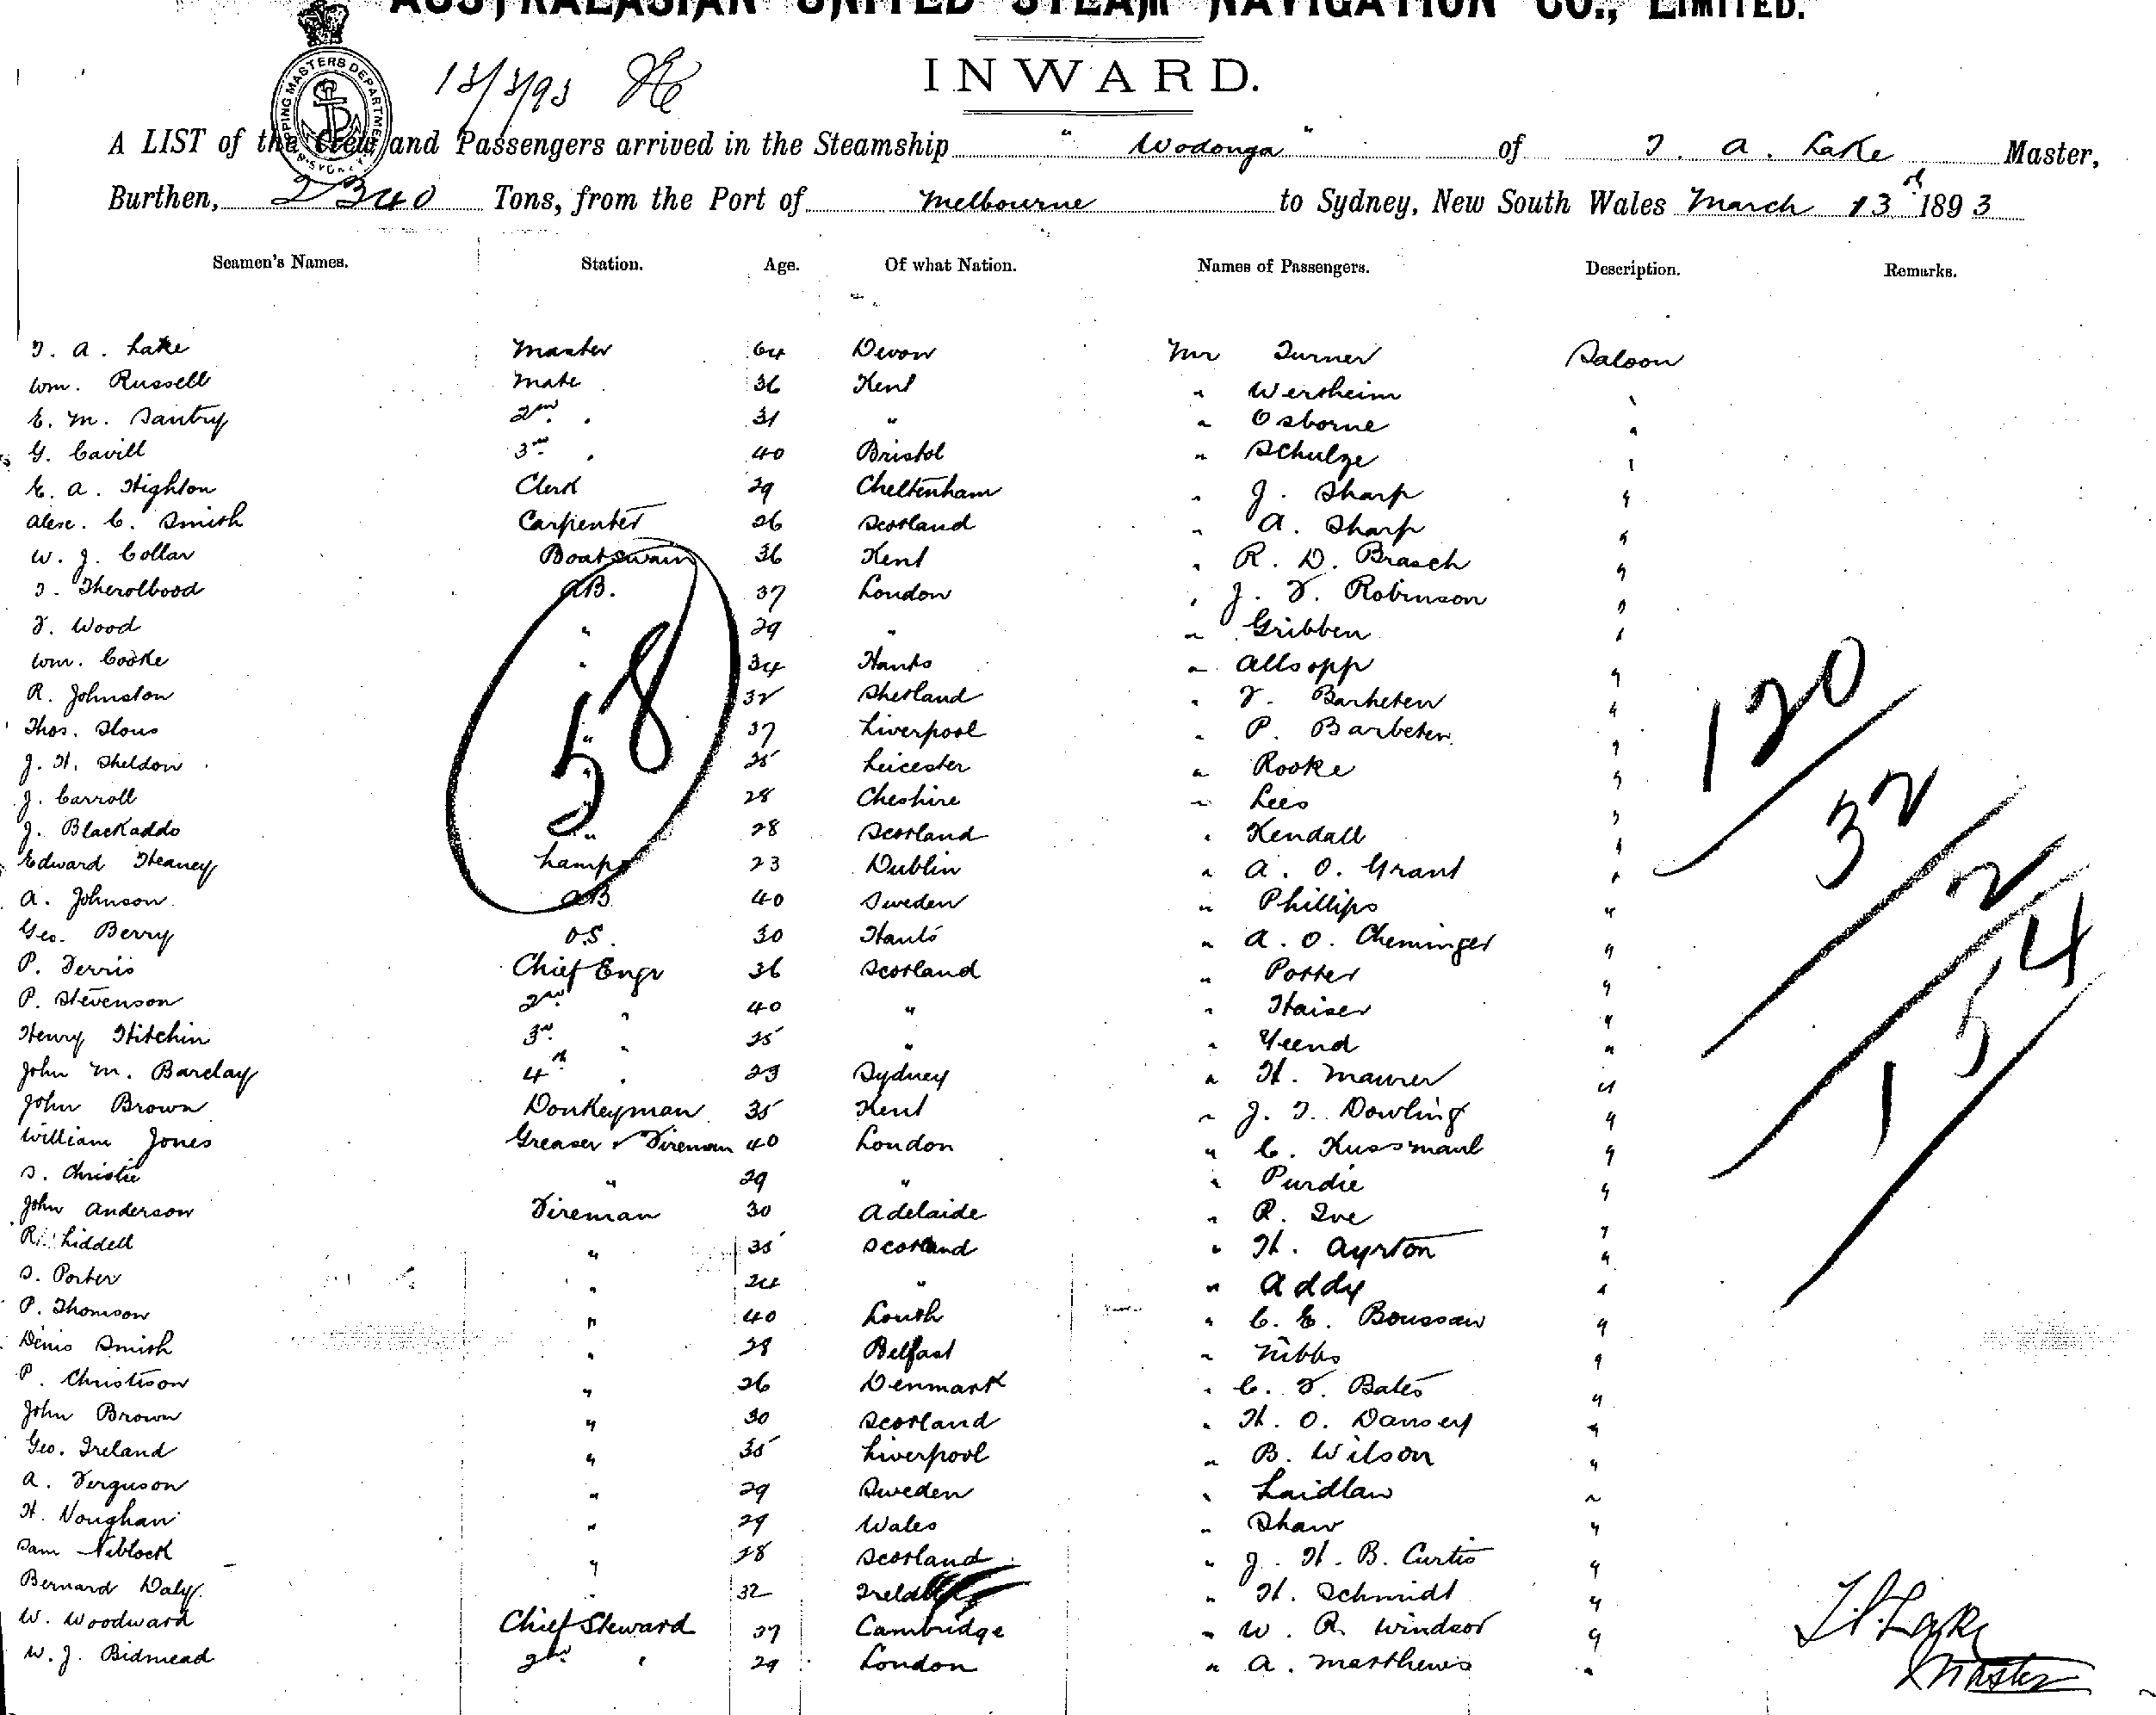 AUSTRALASIAN UNITED STEAM NAVIGATION CO., LIMITED.
INWARD.
13/3/93
A LIST of the Crew and Passengers arrived in the Steamship "Wodonga" of T. A. Lake Master,
Burthen, 2340 Tons, from the Port of Melbourne to Sydney, New South Wales March 13th 1893
Seamen's Names. Station. Age. Of what Nation. Names of Passengers. Description. Remarks.
T. A. Lake Master 64 Devon Mr Turner Saloon
Wm. Russell Mate 36 Kent " Wertheim "
E. M. Santry 2nd " 31 " " Osborne "
G. Cavill 3rd " 40 Bristol " Schulze "
E. A. Highton Clerk 29 Cheltenham " J. Sharp "
Alex. C. Smith Carpenter 26 Scotland " A. Sharp "
W. J. Collar Boatswain 36 Kent " R. D. Brasch "
T. AB. 37 London " J. F. Robinson "
F. Wood " 29 " " Gribben "
Wm. Cooke " 34 Hants " Allsopp "
R. Johnston " 32 Shetland " F. "
Thos. " 37 Liverpool " P. "
J. H. Sheldon " 25 Leicester " Rooke "
J. Carroll " 28 Cheshire " Lees "
J. " 28 Scotland " Kendall "
Edward Heaney Lamps 23 Dublin " A. O. Grant "
A. Johnson AB 40 Sweden " Phillips "
Geo. Berry O.S. 30 Hants " A. O. "
P. Ferris Chief Engr 36 Scotland " Potter "
P. Stevenson 2nd " 40 " " Haiser "
Henry Hitchin 3rd " 25 " " Yeend "
John M. Barclay 4th " 23 Sydney " H. Maurer "
John Brown Donkeyman 35 Kent " J. T. Dowling "
William Jones Greaser & Fireman 40 London " C. Kussmaul "
S. Christie " 29 " " Purdie "
John Anderson Fireman 30 Adelaide " R. Ive "
R. Liddell " 35 Scotland " H. Ayrton "
S. Porter " 24 " " Addy "
P. Thomson " 40 Louth " C. E. "
Denis Smith " 28 Belfast " Nibbs "
P. Christison " 26 Denmark " C. F. Bates "
John Brown " 30 Scotland " H. O. Dansey "
Geo. Ireland " 35 Liverpool " B. Wilson "
A. Ferguson " 29 Sweden " Laidlaw "
H. Voughan " 29 Wales " Shaw "
Sam Niblock " 28 Scotland " J. H. B. Curtis "
Bernard Daly " 32 Ireland " H. Schmidt "
W. Woodward Chief Steward 37 Cambridge " W. R. Windsor "
W. J. Bidmead 2nd " 29 London " A. Matthews "
58
120
32
2
154
T. A. Lake
Master